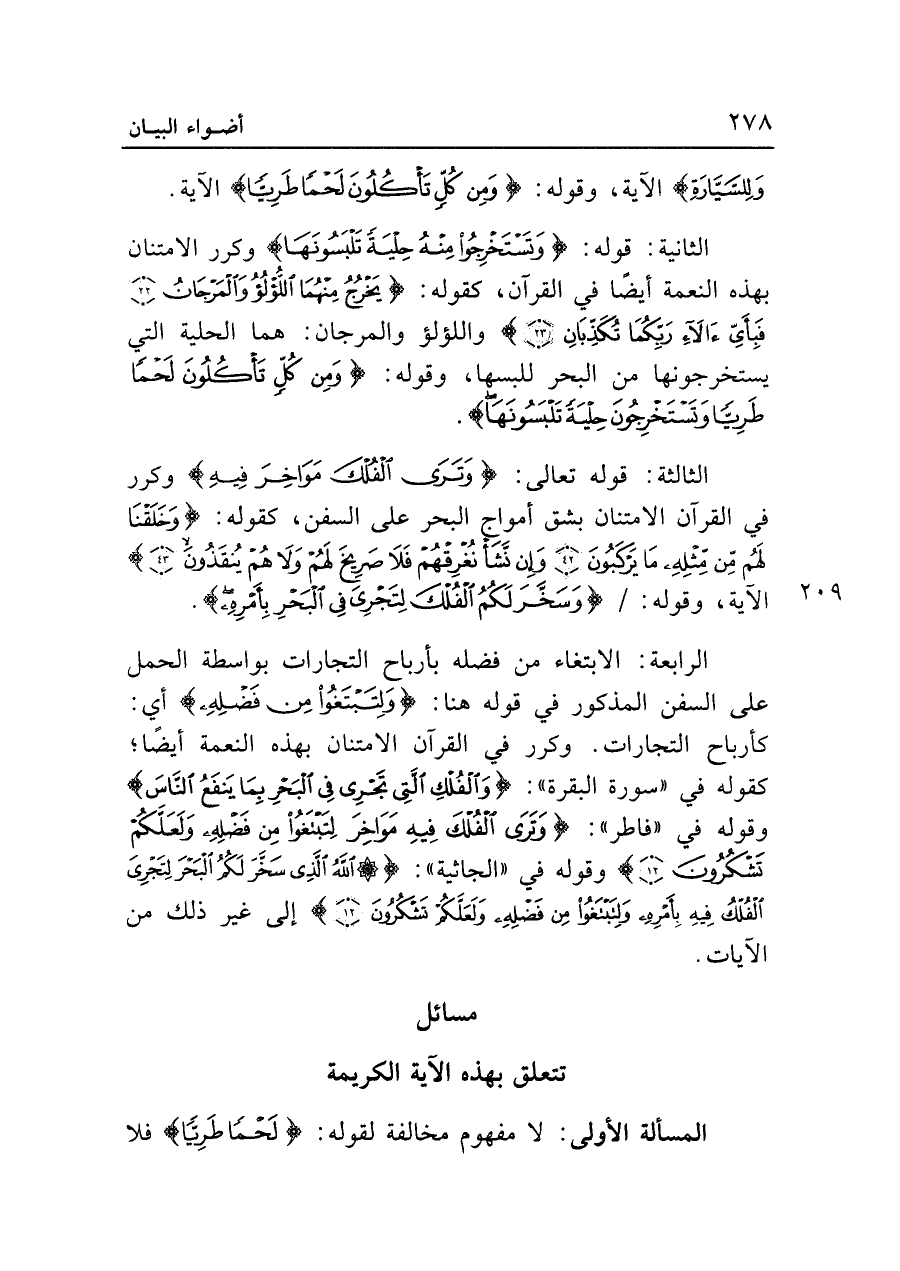 ٢٧٨ أضواء البيان
وَلِلسَّيَّارَةِ﴾ الآية، وقوله: ﴿وَمِن كُلٍّ تَأْكُلُونَ لَحْمًا طَرِيًّا﴾ الآية.
الثانية: قوله: ﴿وَتَسْتَخْرِجُوا۟ مِنْهُ حِلْيَةً تَلْبَسُونَهَا﴾ وكرر الامتنان
بهذه النعمة أيضًا في القرآن، كقوله: ﴿يَخْرُجُ مِنْهُمَا ٱللُّؤْلُؤُ وَٱلْمَرْجَانُ ٢٢
فَبِأَىِّ ءَالَآءِ رَبِّكُمَا تُكَذِّبَانِ ٢٣﴾ واللؤلؤ والمرجان: هما الحلية التي
يستخرجونها من البحر للبسها، وقوله: ﴿وَمِن كُلٍّ تَأْكُلُونَ لَحْمًا
طَرِيًّا وَتَسْتَخْرِجُونَ حِلْيَةً تَلْبَسُونَهَا ۖ﴾.
الثالثة: قوله تعالى: ﴿وَتَرَى ٱلْفُلْكَ مَوَاخِرَ فِيهِ﴾ وكرر
في القرآن الامتنان بشق أمواج البحر على السفن، كقوله: ﴿وَخَلَقْنَا
لَهُم مِّن مِّثْلِهِۦ مَا يَرْكَبُونَ ٤٢ وَإِن نَّشَأْ نُغْرِقْهُمْ فَلَا صَرِيخَ لَهُمْ وَلَا هُمْ يُنقَذُونَ ٤٣﴾
الآية، وقوله: / ﴿وَسَخَّرَ لَكُمُ ٱلْفُلْكَ لِتَجْرِىَ فِى ٱلْبَحْرِ بِأَمْرِهِۦ ۖ﴾. ٢٠٩
الرابعة: الابتغاء من فضله بأرباح التجارات بواسطة الحمل
على السفن المذكور في قوله هنا: ﴿وَلِتَبْتَغُوا۟ مِن فَضْلِهِۦ﴾ أي:
كأرباح التجارات. وكرر في القرآن الامتنان بهذه النعمة أيضًا؛
كقوله في «سورة البقرة»: ﴿وَٱلْفُلْكِ ٱلَّتِى تَجْرِى فِى ٱلْبَحْرِ بِمَا يَنفَعُ ٱلنَّاسَ﴾
وقوله في «فاطر»: ﴿وَتَرَى ٱلْفُلْكَ فِيهِ مَوَاخِرَ لِتَبْتَغُوا۟ مِن فَضْلِهِۦ وَلَعَلَّكُمْ
تَشْكُرُونَ ١٢﴾ وقوله في «الجاثية»: ﴿۞ ٱللَّهُ ٱلَّذِى سَخَّرَ لَكُمُ ٱلْبَحْرَ لِتَجْرِىَ
ٱلْفُلْكُ فِيهِ بِأَمْرِهِۦ وَلِتَبْتَغُوا۟ مِن فَضْلِهِۦ وَلَعَلَّكُمْ تَشْكُرُونَ ١٢﴾ إلى غير ذلك من
الآيات.
مسائل
تتعلق بهذه الآية الكريمة
المسألة الأولى: لا مفهوم مخالفة لقوله: ﴿لَحْمًا طَرِيًّا﴾ فلا